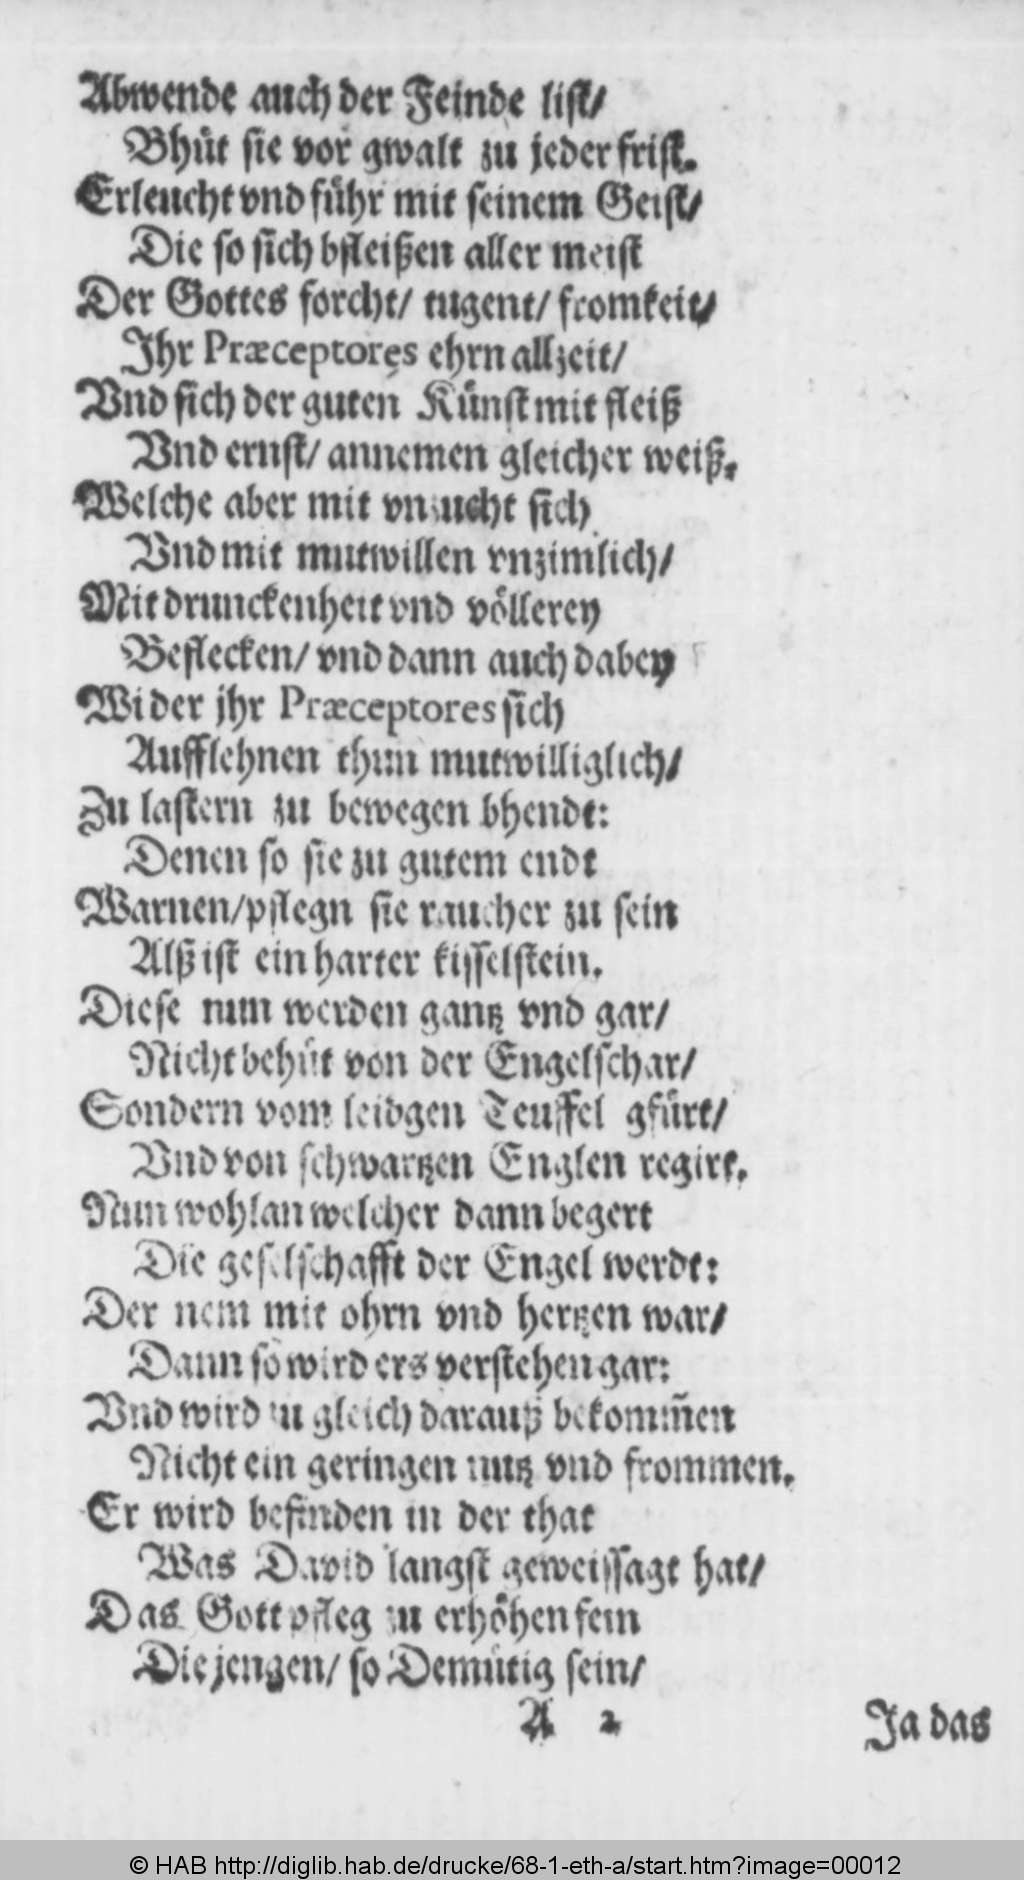 Abwende auch der Feinde list/
Bhüt sie vor gwalt zu jeder frist.
Erleucht vnd führ mit seinem Geist/
Die so sich bfleißen aller meist
Der Gottes forcht/ tugent/ fromkeit/
Ihr Præceptores ehrn allzeit/
Vnd sich der guten Künst mit fleiß
Vnd ernst/ annemen gleicher weiß.
Welche aber mit vnzucht sich
Vnd mit mutwillen vnzimlich/
Mit drunckenheit vnd völlerey
Beflecken/ vnd dann auch dabey
Wider jhr Præceptores sich
Aufflehnen thun mutwilliglich/
Zu lastern zu bewegen bhendt:
Denen so sie zu gutem endt
Warnen/ pflegn sie raucher zu sein
Alß ist ein harter kisselstein.
Diese nun werden gantz vnd gar/
Nicht behüt von der Engelschar/
Sondern vom leidgen Teuffel gfürt/
Vnd von schwartzen Englen regirt.
Nun wohlan welcher dann begert
Die geselschafft der Engel werdt:
Der nem mit ohrn vnd hertzen war/
Dann so wird ers verstehen gar:
Vnd wird zu gleich darauß bekom̃en
Nicht ein geringen nutz vnd frommen.
Er wird befinden in der that
Was David langst geweissagt hat/
Das Gott pfleg zu erhöhen fein
Die jengen/ so Demütig sein/
A 2 Ja das
© HAB http://diglib.hab.de/drucke/68-1-eth-a/start.htm?image=00012